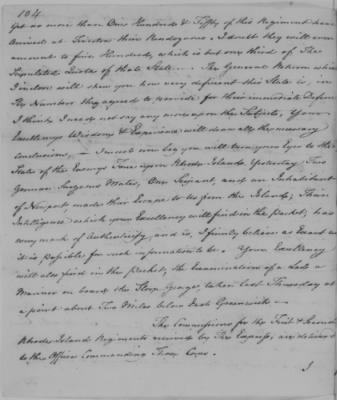 184.
yet no more than One Hundred & Fifty of this Regiment have
Arrived at Tiverton their Rendezvous. I doubt they will even
amount to five Hundred, which is but one third of The
Stipulated Quota of that State. — The General Return which
I inclose will shew you how very deficient this State is, in
The Number they agreed to provide for their immediate Defence
I think I need not say any more upon this Subject, Your
Excellencys Wisdom & Experience will draw all the necessary
Conclusions, — I must now beg you will turn your Eyes to the
State of the Enemys Force upon Rhode Island. Yesterday Two
German Surgeons Mates, One Serjeant, and an Inhabitant
of Newport, made their Escape to us from the Island; Their
Intelligence which your Excellency will find in the packet, has
every mark of Authenticity, and is, I firmly believe as Exact as
it is possible for such information to be. Your Excellency
will also find in the packet, the Examination of a Lad a
Mariner on board the Sloop taken last Thursday at
a point about Two Miles below East Greenwich —
The Commissions for the First & Second
Rhode Island Regiments received by The Express, are delivered
to the Officer Commanding Those Corps.
I